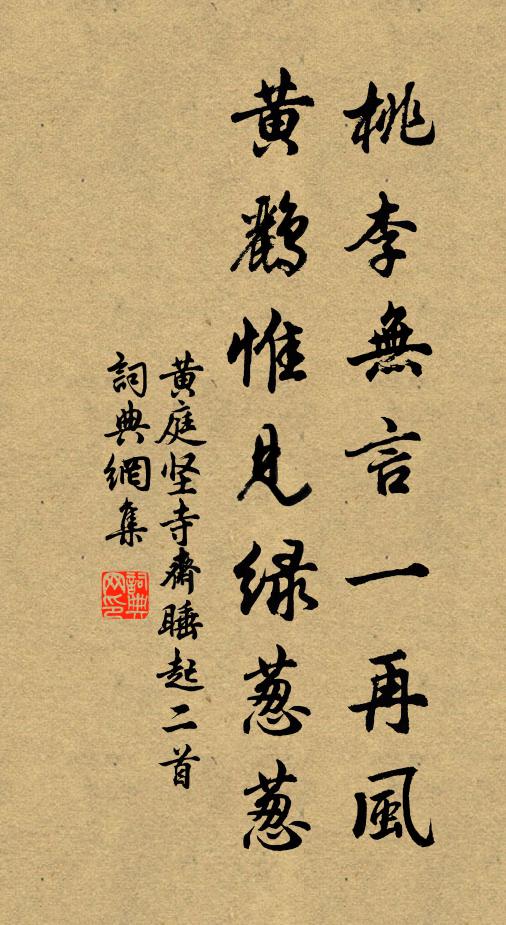 桃李無言一再風
黄鸝惟見緑葱葱
黄庭坚寺齋睡起二首
詞典網集
詞典
网印